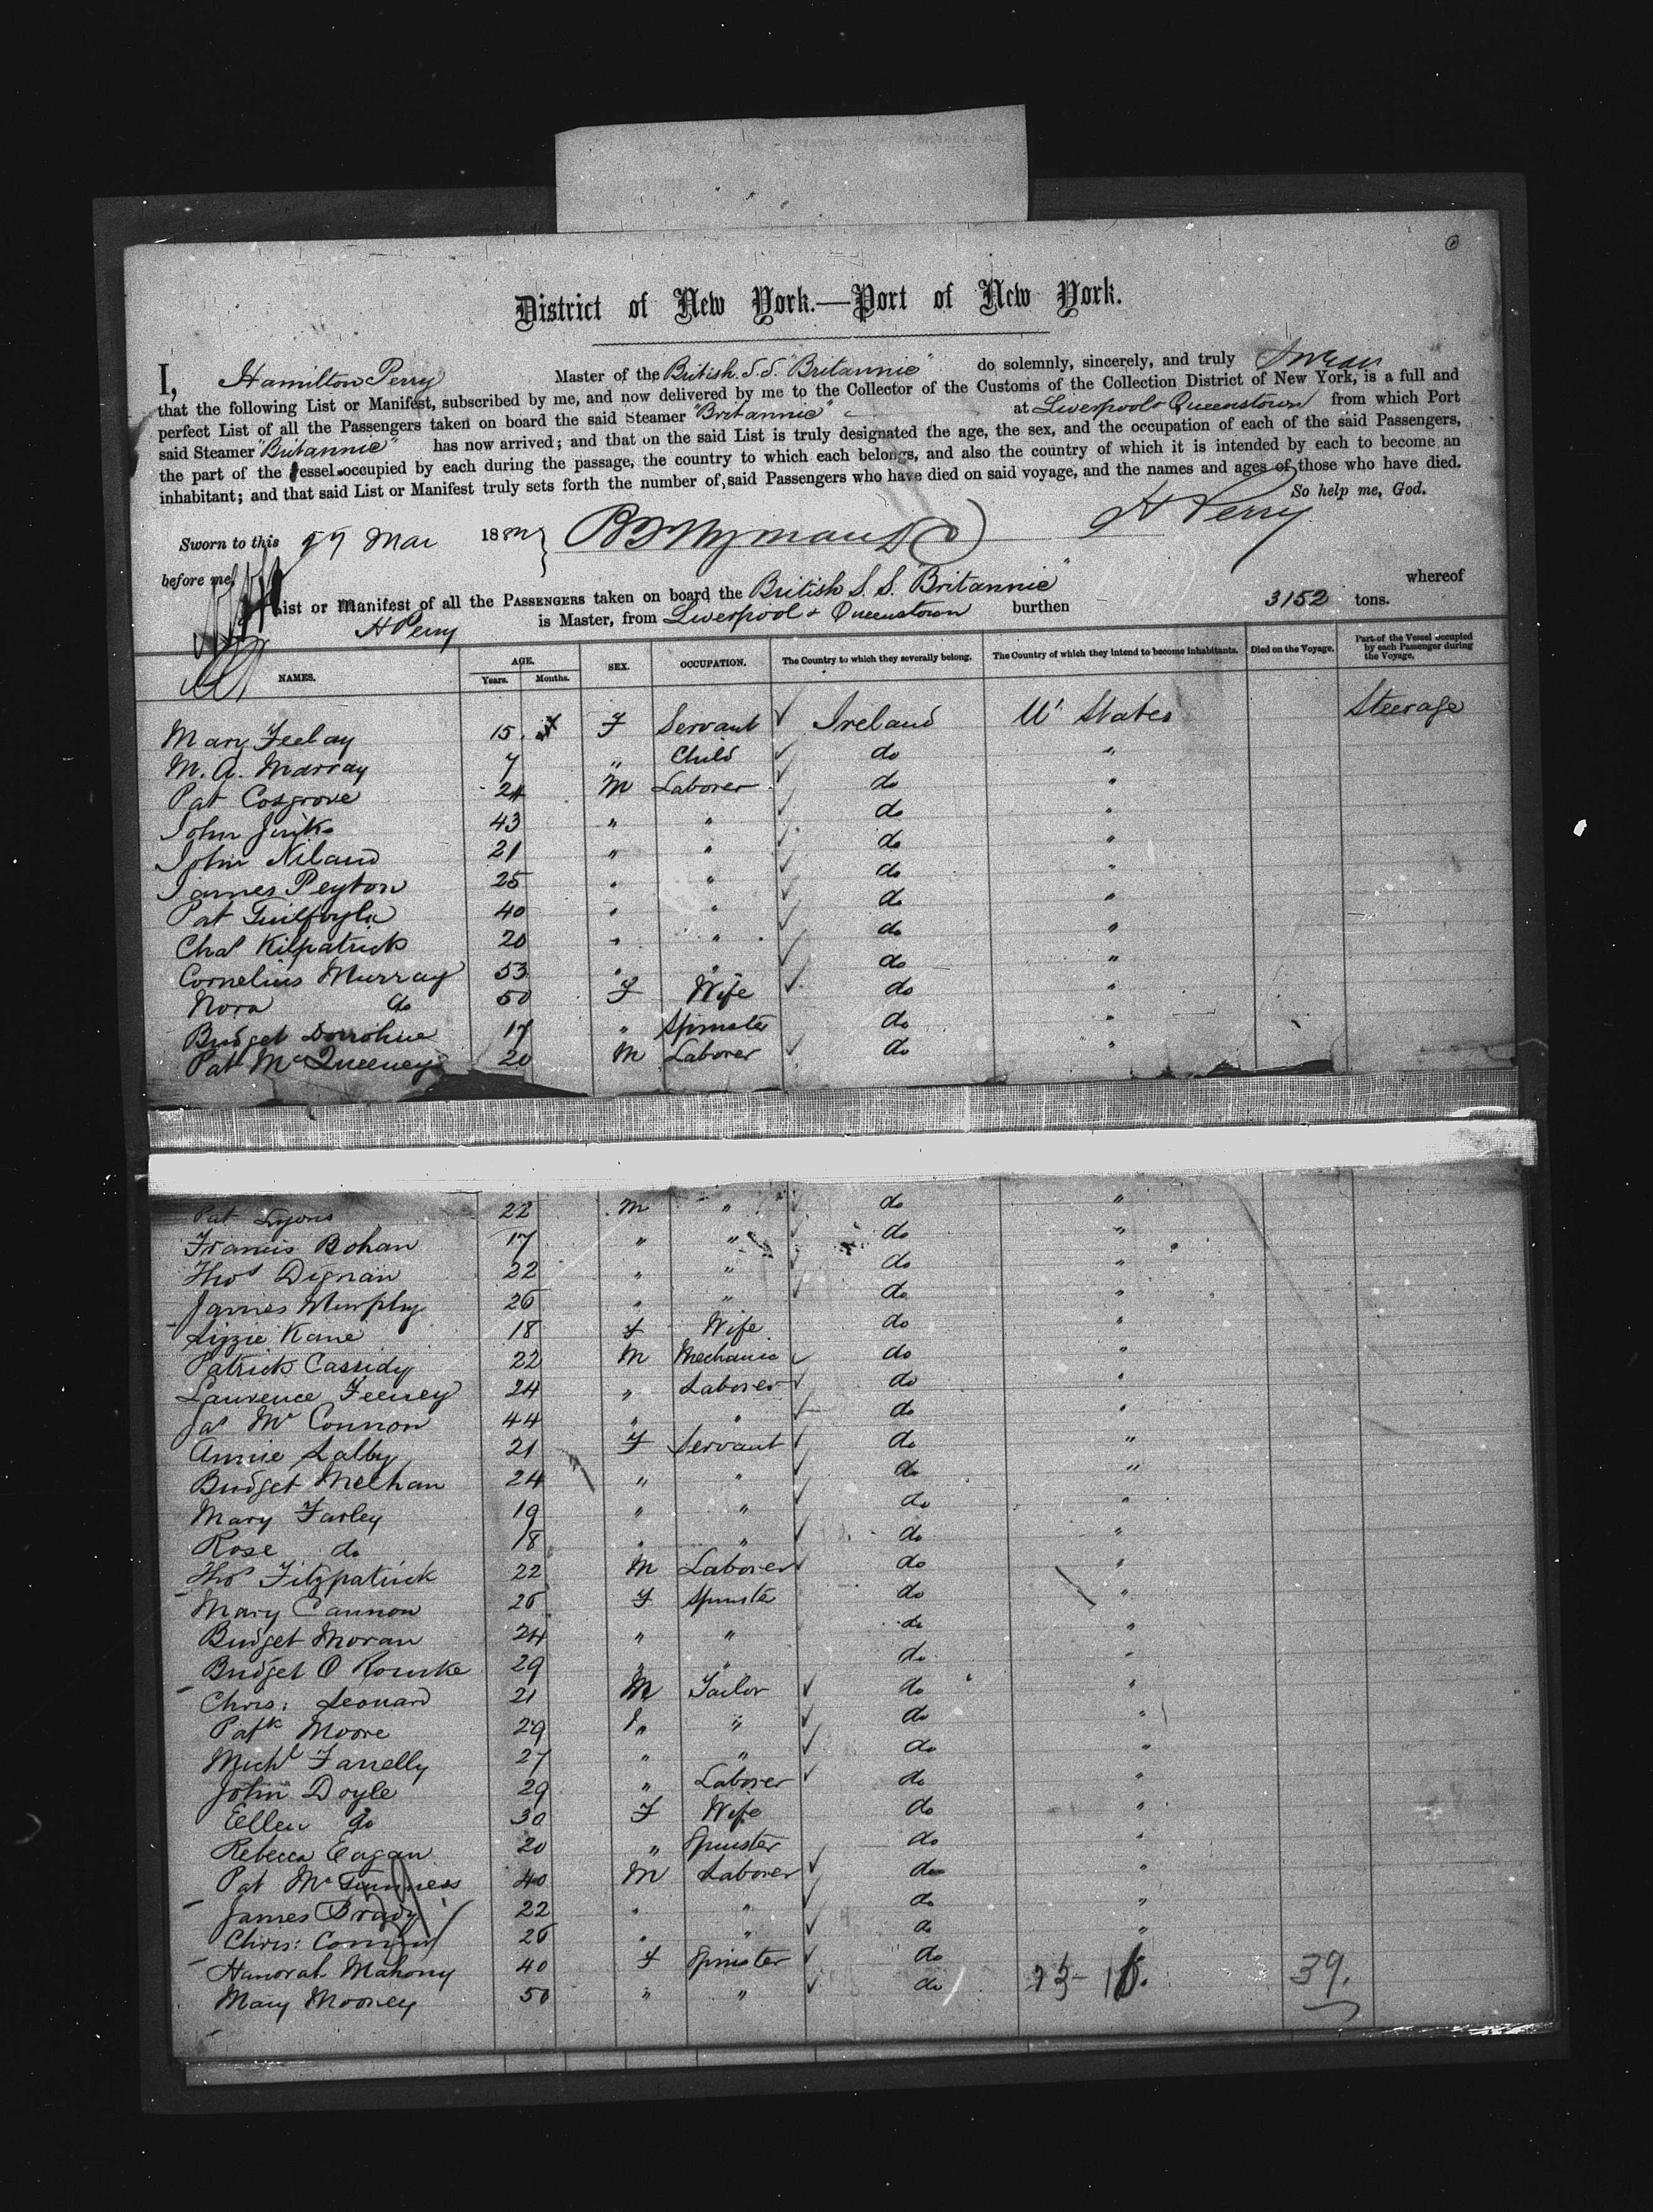 District of New York.—Port of New York.
I, Hamilton Perry Master of the British S.S. "Britannic" do solemnly, sincerely, and truly swear
that the following List or Manifest, subscribed by me, and now delivered by me to the Collector of the Customs of the Collection District of New York, is a full and
perfect List of all the Passengers taken on board the said Steamer "Britannic" at Liverpool & Queenstown from which Port
said Steamer "Britannic" has now arrived; and that on the said List is truly designated the age, the sex, and the occupation of each of the said Passengers,
the part of the vessel occupied by each during the passage, the country to which each belongs, and also the country of which it is intended by each to become an
inhabitant; and that said List or Manifest truly sets forth the number of said Passengers who have died on said voyage, and the names and ages of those who have died.
So help me, God.
Sworn to this 27 Mar 188 H Perry
before me,
List or Manifest of all the PASSENGERS taken on board the British S.S. "Britannic" whereof
H Perry is Master, from Liverpool & Queenstown burthen 3152 tons.
NAMES. AGE. Years. Months. SEX. OCCUPATION. The Country to which they severally belong. The Country of which they intend to become inhabitants. Died on the Voyage. Part of the Vessel occupied by each Passenger during the Voyage.
Mary Feelay 15 F Servant ✓ Ireland U' States Steerage
M. A. Murray 7 " Child ✓ do "
Pat Cosgrove 24 M Laborer ✓ do "
John Jinks 43 " " ✓ do "
John Niland 21 " " ✓ do "
James Peyton 25 " " ✓ do "
Pat Guilfoyle 40 " " ✓ do "
Chas Kilpatrick 20 " " ✓ do "
Cornelius Murray 53 " " ✓ do "
Nora do 50 F Wife ✓ do "
Bridget Donohue 17 " Spinster do "
Pat McQueeney 20 M Laborer ✓ do "
Pat Lyons 22 M " ✓ do "
Francis Bohan 17 " " ✓ do "
Thos Dignan 22 " " ✓ do "
James Murphy 26 " " ✓ do "
Lizzie Kane 18 F Wife do "
Patrick Cassidy 22 M Mechanic ✓ do "
Laurence Feeney 24 " Laborer ✓ do "
Jas McConnon 44 " " ✓ do "
Annie Lalby 21 F Servant ✓ do "
Bridget Meehan 24 " " ✓ do "
Mary Farley 19 " " ✓ do "
Rose do 18 " " ✓ do "
Thos Fitzpatrick 22 M Laborer ✓ do "
Mary Cannon 26 F Spinster do "
Bridget Moran 24 " " do "
Bridget O Rourke 29 " " do "
Chris: Leonard 21 M Tailor ✓ do "
Patk Moore 29 " " ✓ do "
Michl Farrelly 27 " " ✓ do "
John Doyle 29 " Laborer ✓ do "
Ellen do 30 F Wife do "
Rebecca Eagan 20 " Spinster do "
Pat McGuinness 40 M Laborer ✓ do "
James Brady 22 " " ✓ do "
Chris: 26 " " ✓ do "
Hanorah Mahony 40 F Spinster ✓ do "
Mary Mooney 50 " " ✓ do 39.